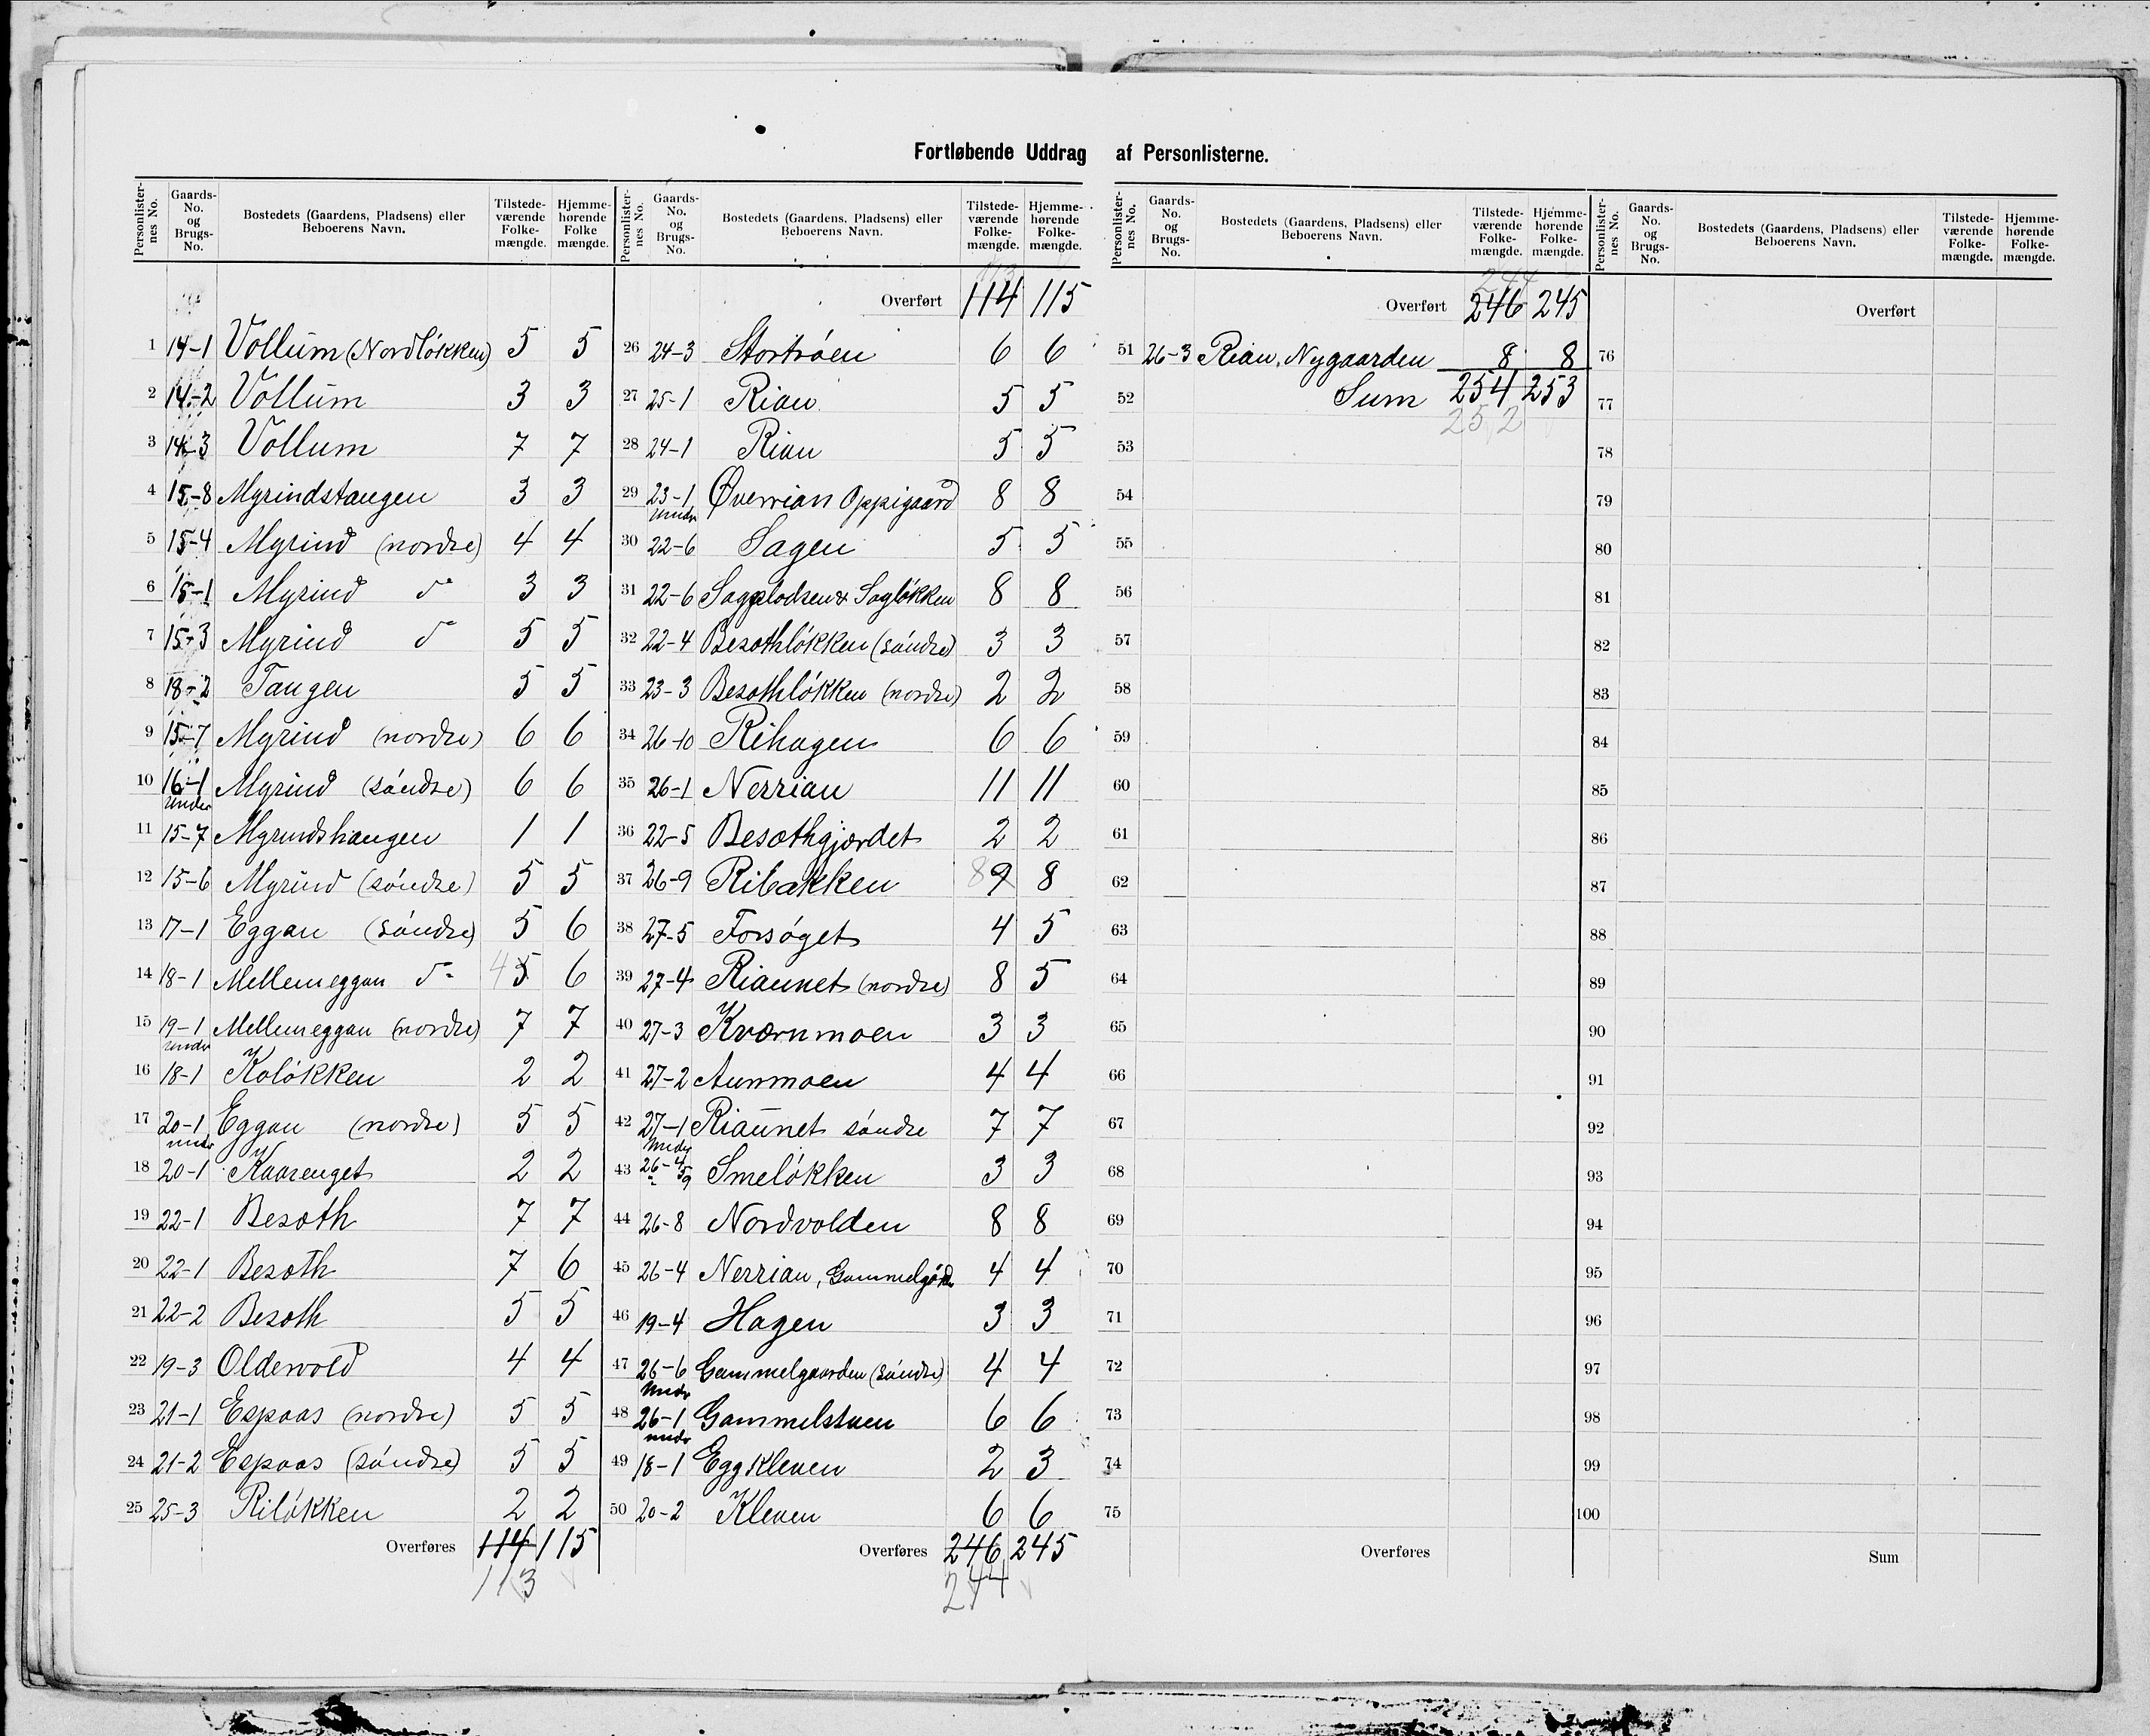 Fortløbende Uddrag af Personlisterne.
Personlister-nes No. Gaards-No. og Brugs-No. Bostedets (Gaardens, Pladsens) eller Beboerens Navn. Tilstede-værende Folke-mængde. Hjemme-hørende Folke mængde.
1 14-1 Vollum (Nordløkken) 5 5
2 14-2 Vollum 3 3
3 14-3 Vollum 7 7
4 15-8 Myrindstangen 3 3
5 15-4 Myrind (nordre) 4 4
6 15-1 Myrind do 3 3
7 15-3 Myrind do 5 5
8 18-2 Tangen 5 5
9 15-7 Myrind (nordre) 6 6
10 16-1 Myrind (søndre) 6 6
under
11 15-7 Myrindshaugen 1 1
12 15-6 Myrind (søndre) 5 5
13 17-1 Eggan (søndre) 5 6
14 18-1 Mellemeggan do 4 5 6
15 19-1 Mellemeggan (nordre) 7 7
under
16 18-1 Koløkken 2 2
17 20-1 Eggan (nordre) 5 5
under
18 20-1 Kvarenget 2 2
19 22-1 Besøth 7 7
20 22-1 Besøth 7 6
21 22-2 Besøth 5 5
22 19-3 Oldervold 4 4
23 21-1 Espaas (nordre) 5 5
24 21-2 Espaas (søndre) 5 5
25 25-3 Riløkken 2 2
Overføres 114 115
113
Personlister-nes No. Gaards-No. og Brugs-No. Bostedets (Gaardens, Pladsens) eller Beboerens Navn. Tilstede-værende Folke-mængde. Hjemme-hørende Folke-mængde.
113
Overført 114 115
26 24-3 Stortrøen 6 6
27 25-1 Rian 5 5
28 24-1 Rian 5 5
29 23-1 Øverrian Oppigaard 8 8
under
30 22-6 Sagen 5 5
31 22-6 Sagplodsen & Sagløkken 8 8
32 22-4 Besøthløkken (søndre) 3 3
33 23-3 Besøthløkken (nordre) 2 2
34 26-10 Rihagen 6 6
35 26-1 Nerrian 11 11
36 22-5 Besøthgjærdet 2 2
37 26-9 Ribakken 8 9 8
38 27-5 Forsøget 4 5
39 27-4 Riaunet (nordre) 8 5
40 27-3 Kværnmoen 3 3
41 27-2 Aunmoen 4 4
42 27-1 Riaunet søndre 7 7
under
43 26-4 5 9 Smeløkken 3 3
44 26-8 Nordvolden 8 8
45 26-4 Nerrian, Gammelgård 4 4
46 19-4 Hagen 3 3
47 26-6 Gammelgaarden (søndre) 4 4
under
48 26-1 Gammelstuen 6 6
under
49 18-1 Eggkleven 2 3
50 20-2 Kleven 6 6
Overføres 246 245
244
Personlister-nes No. Gaards-No. og Brugs-No. Bostedets (Gaardens, Pladsens) eller Beboerens Navn. Tilstede-værende Folke-mængde. Hjemme-hørende Folke-mængde.
244
Overført 246 245
51 26-3 Rian, Nygaarden 8 8
52 Sum 254 253
252
53
54
55
56
57
58
59
60
61
62
63
64
65
66
67
68
69
70
71
72
73
74
75
Overføres
Personlister-nes No. Gaards-No. og Brugs-No. Bostedets (Gaardens, Pladsens) eller Beboerens Navn. Tilstede-værende Folke-mængde. Hjemme-hørende Folke-mængde.
Overført
76
77
78
79
80
81
82
83
84
85
86
87
88
89
90
91
92
93
94
95
96
97
98
99
100
Sum